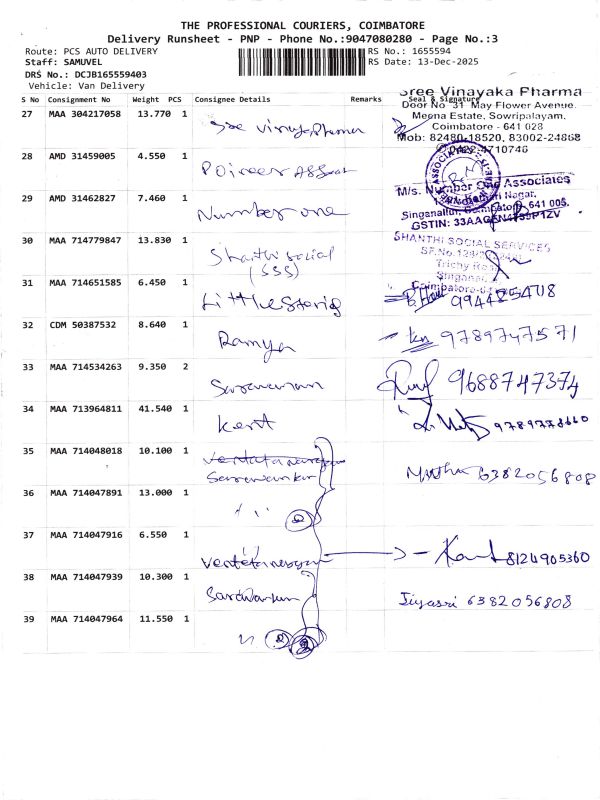 THE PROFESSIONAL COURIERS, COIMBATORE
Delivery Runsheet - PNP - Phone No.:9047080280 - Page No.:3
Route: PCS AUTO DELIVERY
RS No.: 1655594
Staff: SAMUVEL
RS Date: 13-Dec-2025
DRS No.: DCJB165559403
Vehicle: Van Delivery
S No Consignment No Weight PCS Consignee Details Remarks Seal & Signature
Sree Vinayaka Pharma
Door No 31 May Flower Avenue.
Meena Estate, Sowripalayam,
Coimbatore - 641 028
Mob: 82480-18520, 83002-24868
0422-4710746
27 MAA 304217058 13.770 1 Sree Vinayaka Pharma
28 AMD 31459005 4.550 1
ASSOCIATES
M/s. Number One Associates
Singanallur, Coimbatore 641 005.
GSTIN:
29 AMD 31462827 7.460 1 Number one
SHANTHI SOCIAL SERVICES
Trichy
Singanal
Coimbatore-64
30 MAA 714779847 13.830 1 Shanthi Social
(SSS)
31 MAA 714651585 6.450 1 9944254718
32 CDM 50387532 8.640 1 Ramya 9789747571
33 MAA 714534263 9.350 2 Saravanan 9688747374
34 MAA 713964811 41.540 1 Kent 9789778660
35 MAA 714048018 10.100 1
6382056808
36 MAA 714047891 13.000 1
37 MAA 714047916 6.550 1 8124905360
38 MAA 714047939 10.300 1 6382056808
39 MAA 714047964 11.550 1